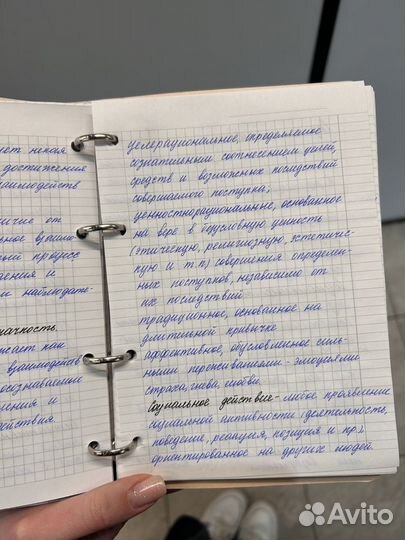 ует некая
достижения
взаимодейств
ичие от
ьное взаимо
ый процесс
ения и
и наблюдате-
начность.
исает как
взаимодейств
осознавание
ления и
действия
целерациональное, определяемое
сознательным соотнесением целей,
средств и возможных последствий
совершаемого поступка;
ценностнорациональные, основанное
на вере в безусловную ценность
(этическую, религиозную, эстетичес-
кую и т.п) совершения определен-
ных поступков, независимо от
их последствий
традиционное, основанное на
длительной привычке
аффективное, обусловленное силь-
ными переживаниями - эмоциями
страха, гнева, любви.
Социальное действие - любое проявление
социальной активности (деятельность,
поведение, реакция, позиция и пр.),
ориентированное на других людей.
Avito